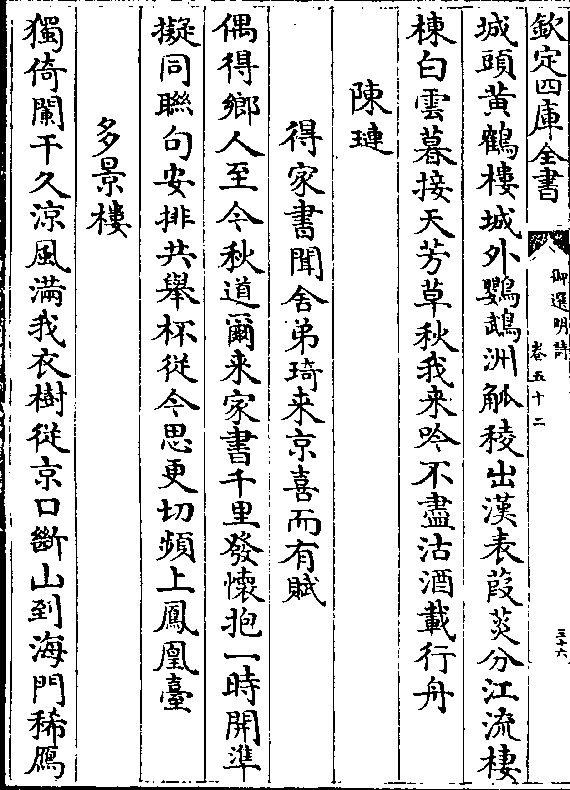 欽定四庫全書
御選明詩
卷五十二
三十六
城頭黃鶴樓城外鸚鵡洲觚稜出漢表葭菼分江流棲
棟白雲暮接天芳草秋我来吟不盡沽酒載行舟
陳璉
得家書聞舍弟琦来京喜而有賦
偶得鄉人至今秋道爾来家書千里發懷抱一時開準
擬同聯句安排共舉杯從今思更切頻上鳳凰臺
多景樓
獨倚闌干久涼風滿我衣樹從京口斷山到海門稀鴈